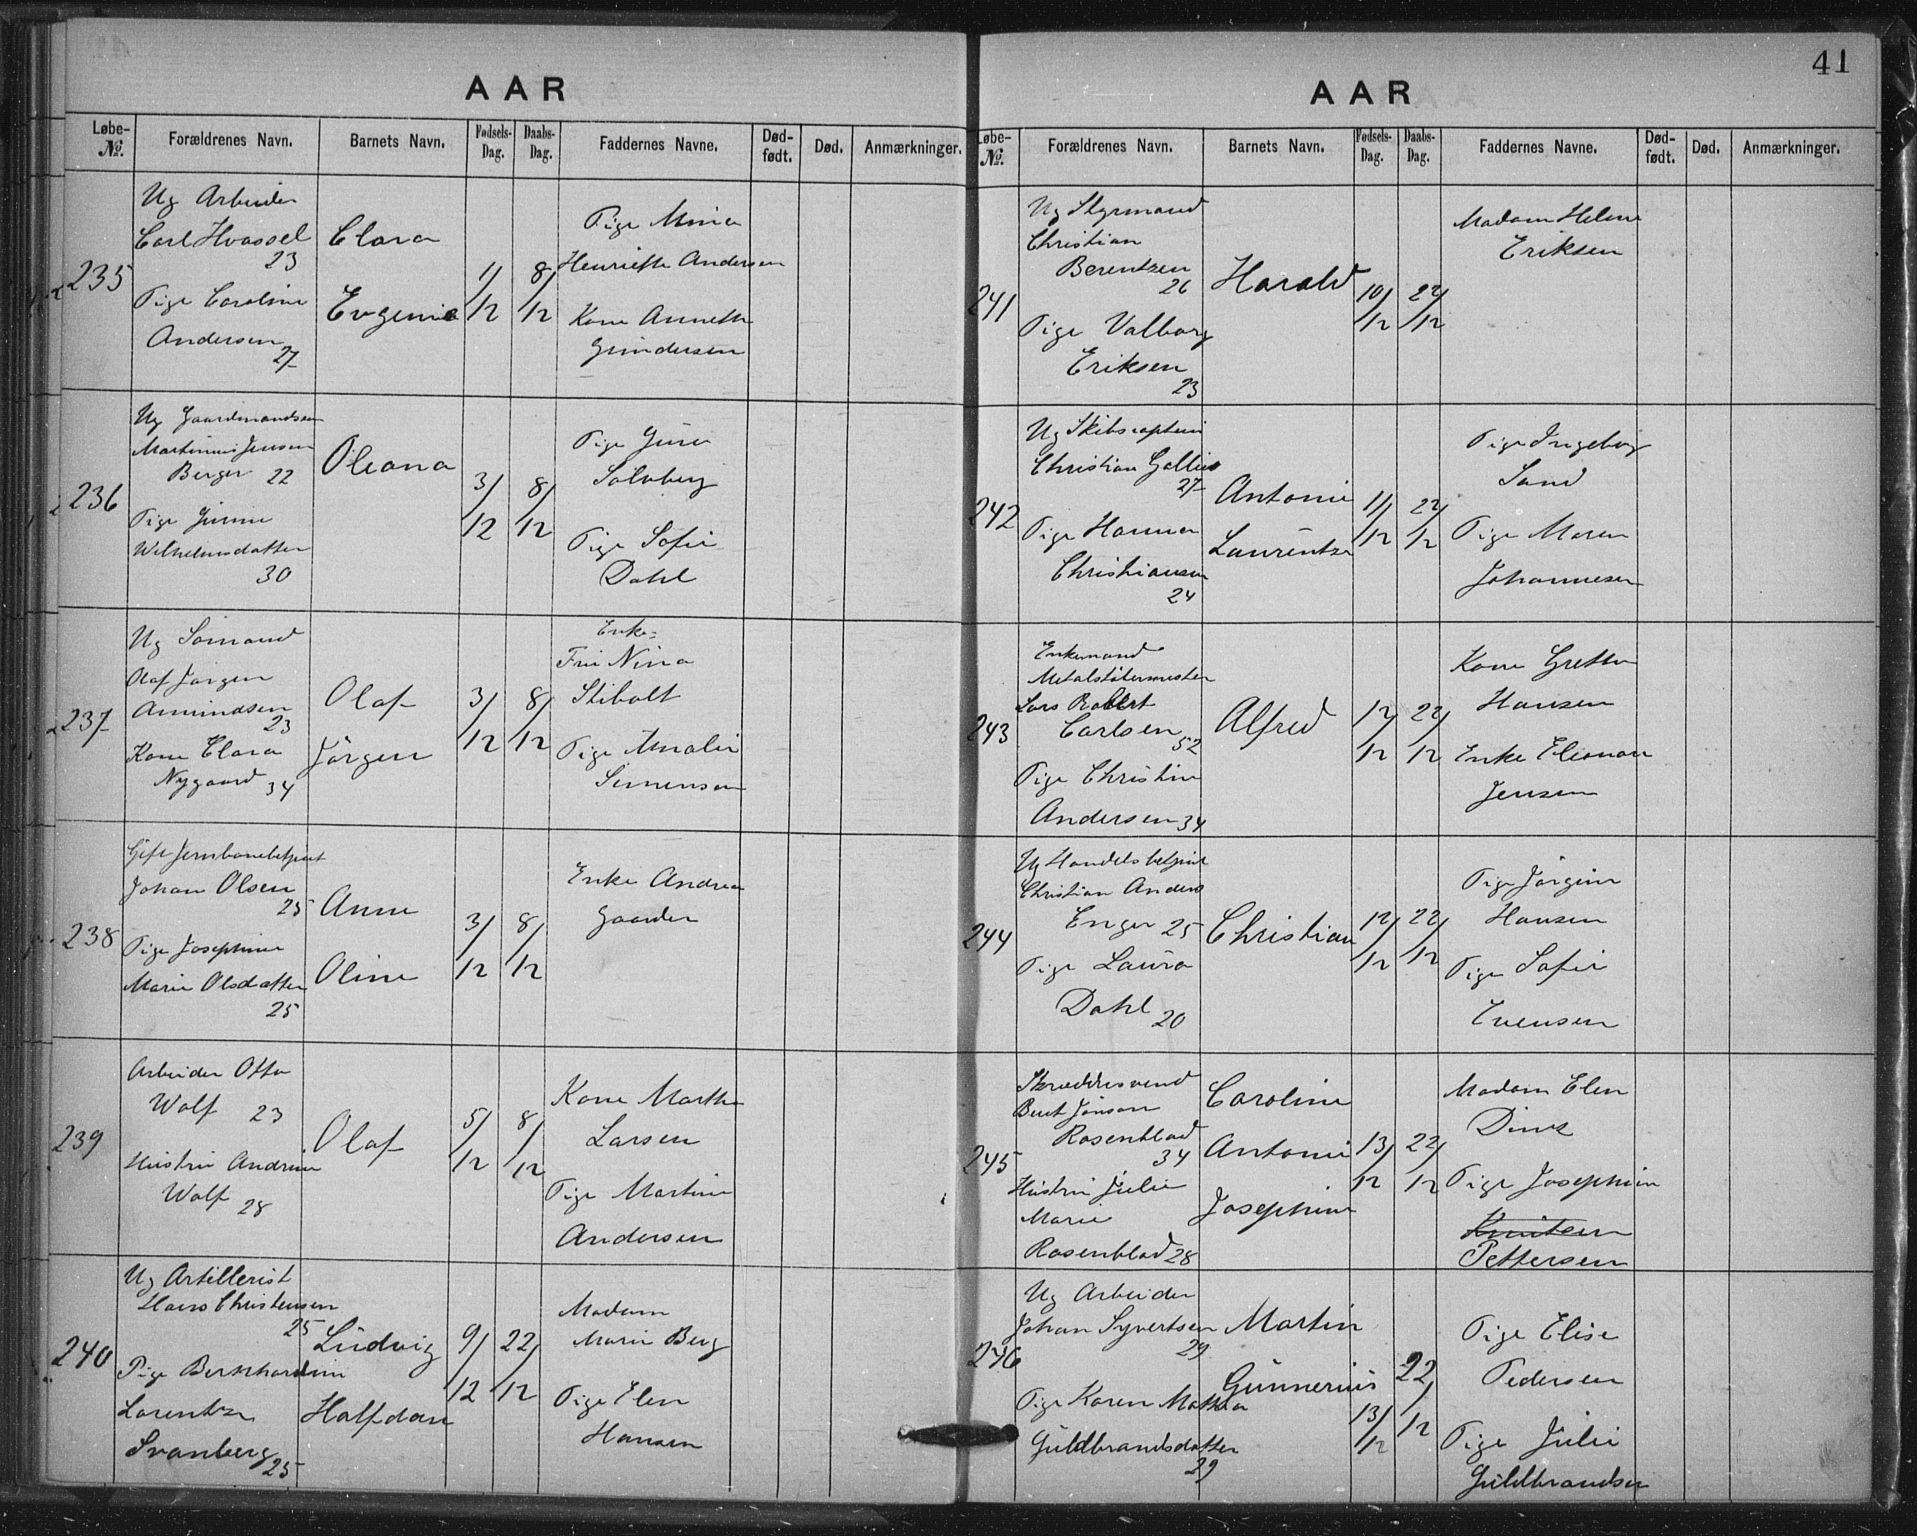 AAR
Løbe-No. Forældrenes Navn. Barnets Navn. Fødsels-Dag. Daabs-Dag. Faddernes Navne. Død-født. Død. Anmærkninger.
235
Ug Arbeider
Carl Hvassel
23
Pige Caroline
Andersen
27
Clara
Evgenie
1/12
8/12
Pige Mina
Henriette Andersen
Kone Annette
Gundersen
236
Ug Gaardmandsøn
Martinius Jensen
Berger 22
Pige
Wilhelmsdatter
30
Oleana
3/12
8/12
Pige
Solvberg
Pige Sofie
Dahl
237
Ug Sømand
Olaf Jørgen
Amundsen
23
Kone Clara
Nygaard 34
Olaf
Jörgen
3/12
8/12
Enke=
Fru Nina
Stibolt
Pige Amalie
Simensen
238
Gift Jernbanebetjent
Johan Olsen
25
Pige Josephine
Marie Olsdatter
25
Anne
Oline
3/12
8/12
Enke Andrea
Gaarder
239
Arbeider Otto
Wolf 23
Hustru Andrine
Wolf 28
Olaf
5/12
8/12
Kone Marthe
Larsen
Pige Martine
Andersen
240
Ug Artillerist
Hans Christensen
25
Pige Bernhardine
Lorentze
Svanberg 25
Ludvig
Halfdan
9/12
22/12
Madam
Marie Berg
Pige Elen
Hansen
41
AAR
Løbe-No. Forældrenes Navn. Barnets Navn. Fødsels-Dag. Daabs-Dag. Faddernes Navne. Død-født. Død. Anmærkninger.
241
Ug Styrmand
Christian
Berentzen
26
Pige Valborg
Eriksen
23
Harald
10/12
22/12
Madam Helene
Eriksen
242
Ug Skibscaptein
Christian Gallius
27
Pige Hanna
Christiansen
24
Antonie
Laurentze
11/12
22/12
Pige Ingeborg
Sand
Pige Maren
Johannesen
243
Enkemand
Metalstøbermester
Lars Robert
Carlsen 52
Pige Christine
Andersen 34
Alfred
12/12
22/12
Kone Grethe
Hansen
Enke Eleonora
Jensen
244
Ug Handelsbetjent
Christian Anders
Enger 25
Pige Laura
Dahl 20
Christian
12/12
22/12
Pige Jørgine
Hansen
Pige Sofie
Evensen
245
Skræddersvend
Bent Jonson
Rosenblad
34
Hustru Julie
Marie
Rosenblad 28
Caroline
Antonie
Josephine
13/12
22/12
Madam Elen
Dines
Pige Josephine
Knutsen
Pettersen
246
Ug Arbeider
Johan Syvertsen
29
Pige Karen Mathea
Guldbrandsdatter
29
Martin
Gunnerius
13/12
22/12
Pige Elise
Pedersen
Pige Julie
Guldbrandsen